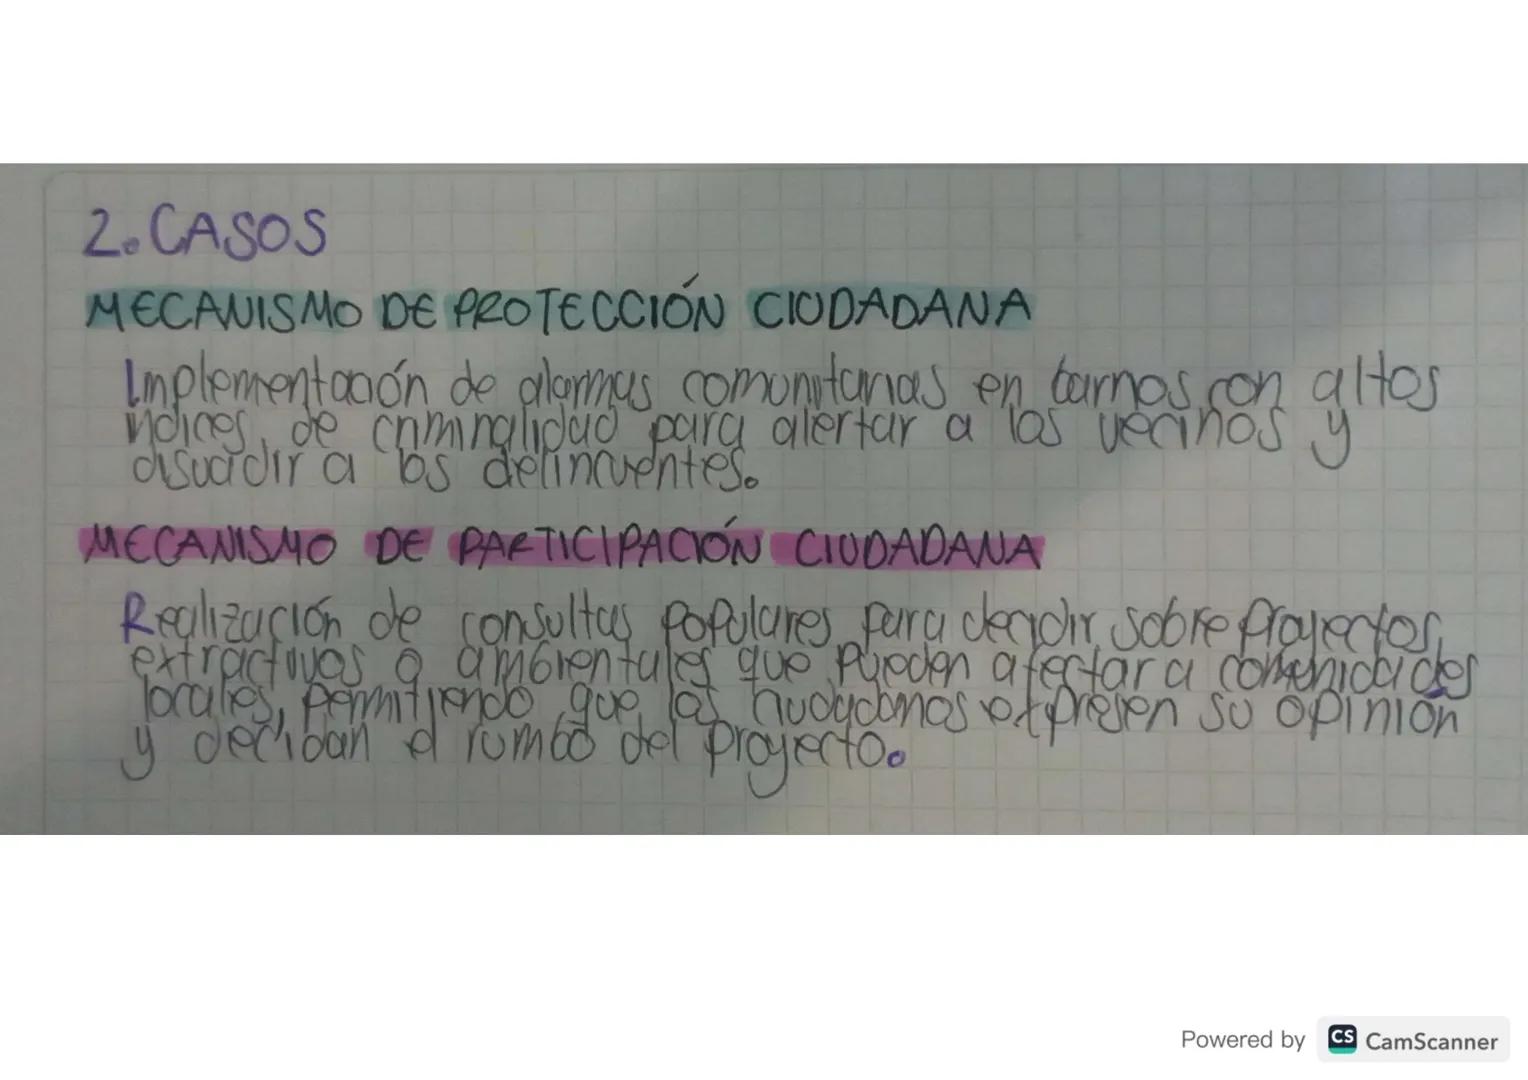 2. CASOS
MECANISMO DE PROTECCIÓN CIUDADANA
Implementación de alarmas comunitarias en barrios con altos
indices, de criminalidad para alertar a los vecinos y
disuadir a los delincuentes.
MECANISMO DE PARTICIPACIÓN CIUDADANA
Realización de consultas populares para decidir sobre proyectos
extractivos o ambientales que pueden afectar a comunidades
locales, permitiendo que los ciudadanos expresen su opinión
y decidan el rumbo del proyecto.
Powered by CS CamScanner